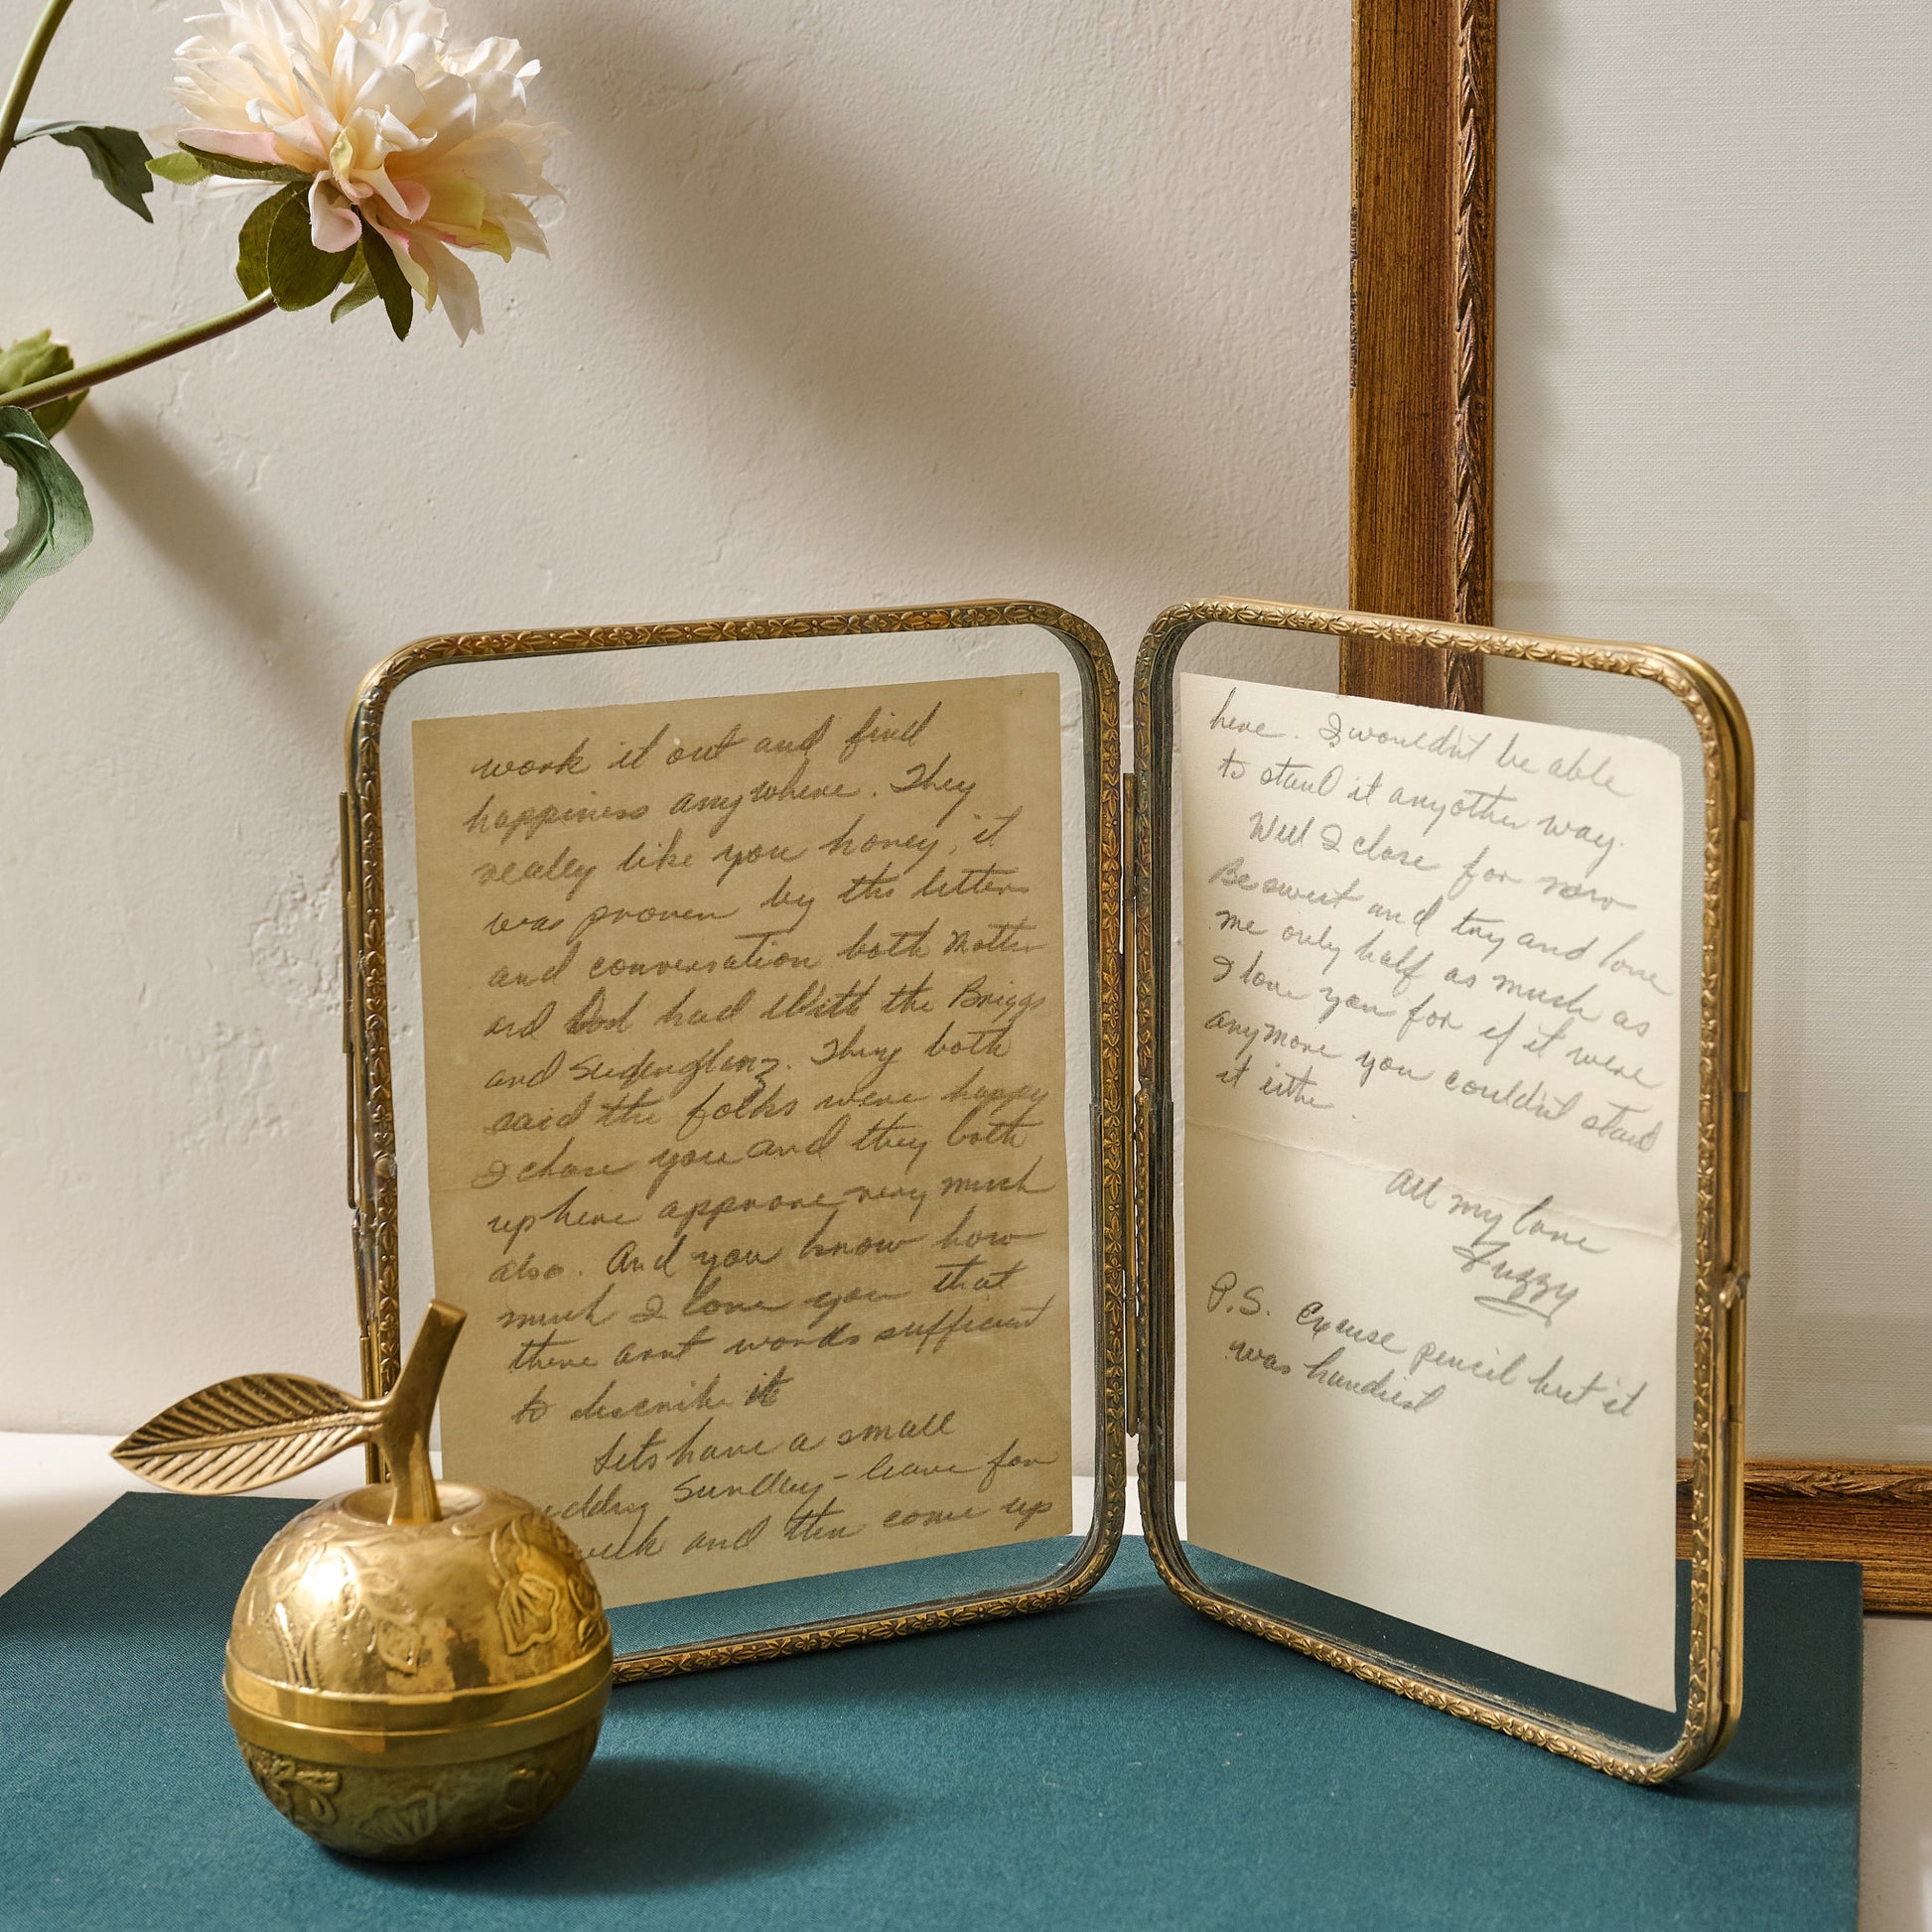 work it out and find
happiness anywhere. They
really like you honey, it
was proven by the letters
and conversation both Mother
and Dad had With the Briggs
and . They both
said the folks were happy
I chose you and they both
up here approve very much
also. And you know how
much I love you that
there arnt words sufficient
to describe it
Lets have a small
Sunday - leave for
week and then come up
here. I wouldnt be able
to stand it anyother way.
Well I close for now
Be sweet and try and love
me only half as much as
I love you for if it were
anymore you couldnt stand
it eithe.
All my love
Fuzzy
P.S. Excuse pencil but it
was handiest